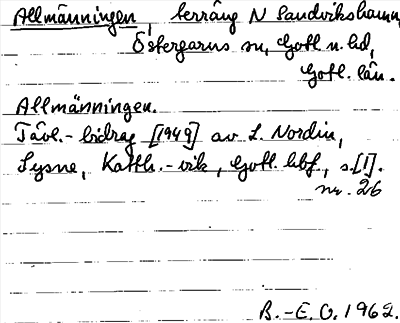 Allmänningen, terräng N Sandvikshamn,
Östergarns sn, Gotl. n. hd,
Gotl. län.
Allmänningen.
Tävl.-bidrag [1949] av L. Nordin,
Sysne, Katth.-vik, Gotl. hbf., s.[1].
nr. 26
B.-E. O. 1962.